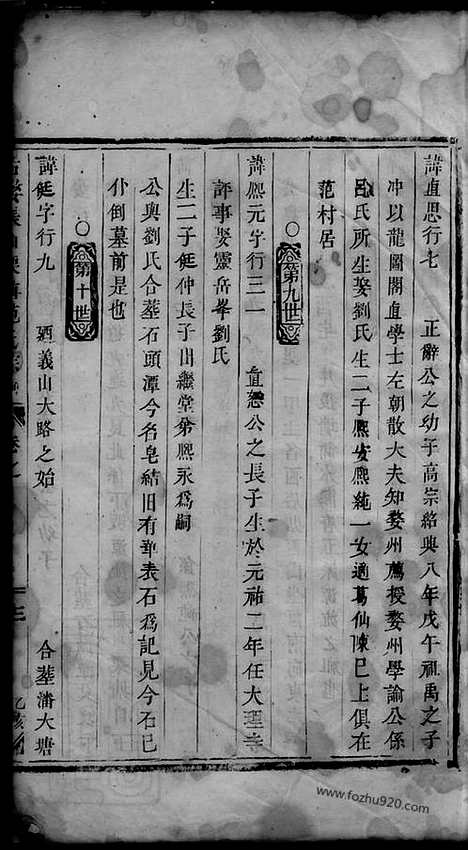 諱直思行七　正辭公之幼子高宗紹興八年戊午祖禹之子
冲以龍圖閣直學士左朝散大夫知婺州薦授婺州學諭公係
呂氏所生娶劉氏生二子熈安熈純一女適葛仙陳巳上俱在
范村居
第九世
諱熈元字行三一　直恕公之長子生於元祐二年任大理寺
評事娶靈岳峯劉氏
生二子綎仲長子出繼堂弟熈永爲嗣
公與劉氏合塟石頭潭今名皂結旧有華表石爲記見今石巳
仆倒墓前是也
第十世
諱綎字行九　廼義山大路之始　合塟潘大塘
乙亥
www.fozhu920.com